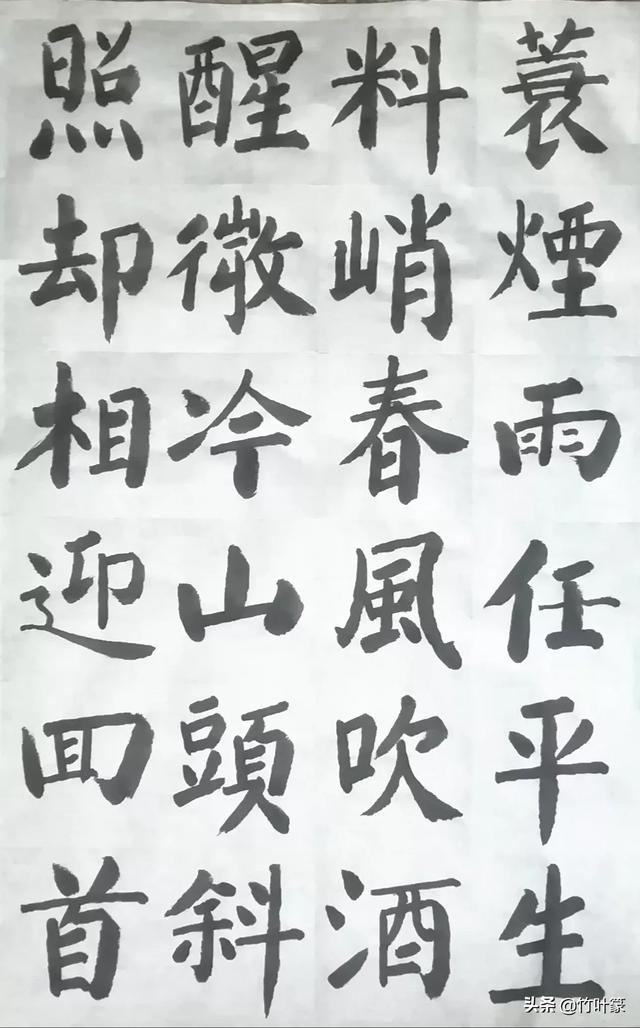 蓑煙雨任平生
料峭春風吹酒
醒微冷山頭斜
照却相迎回首
头条 @竹叶篆